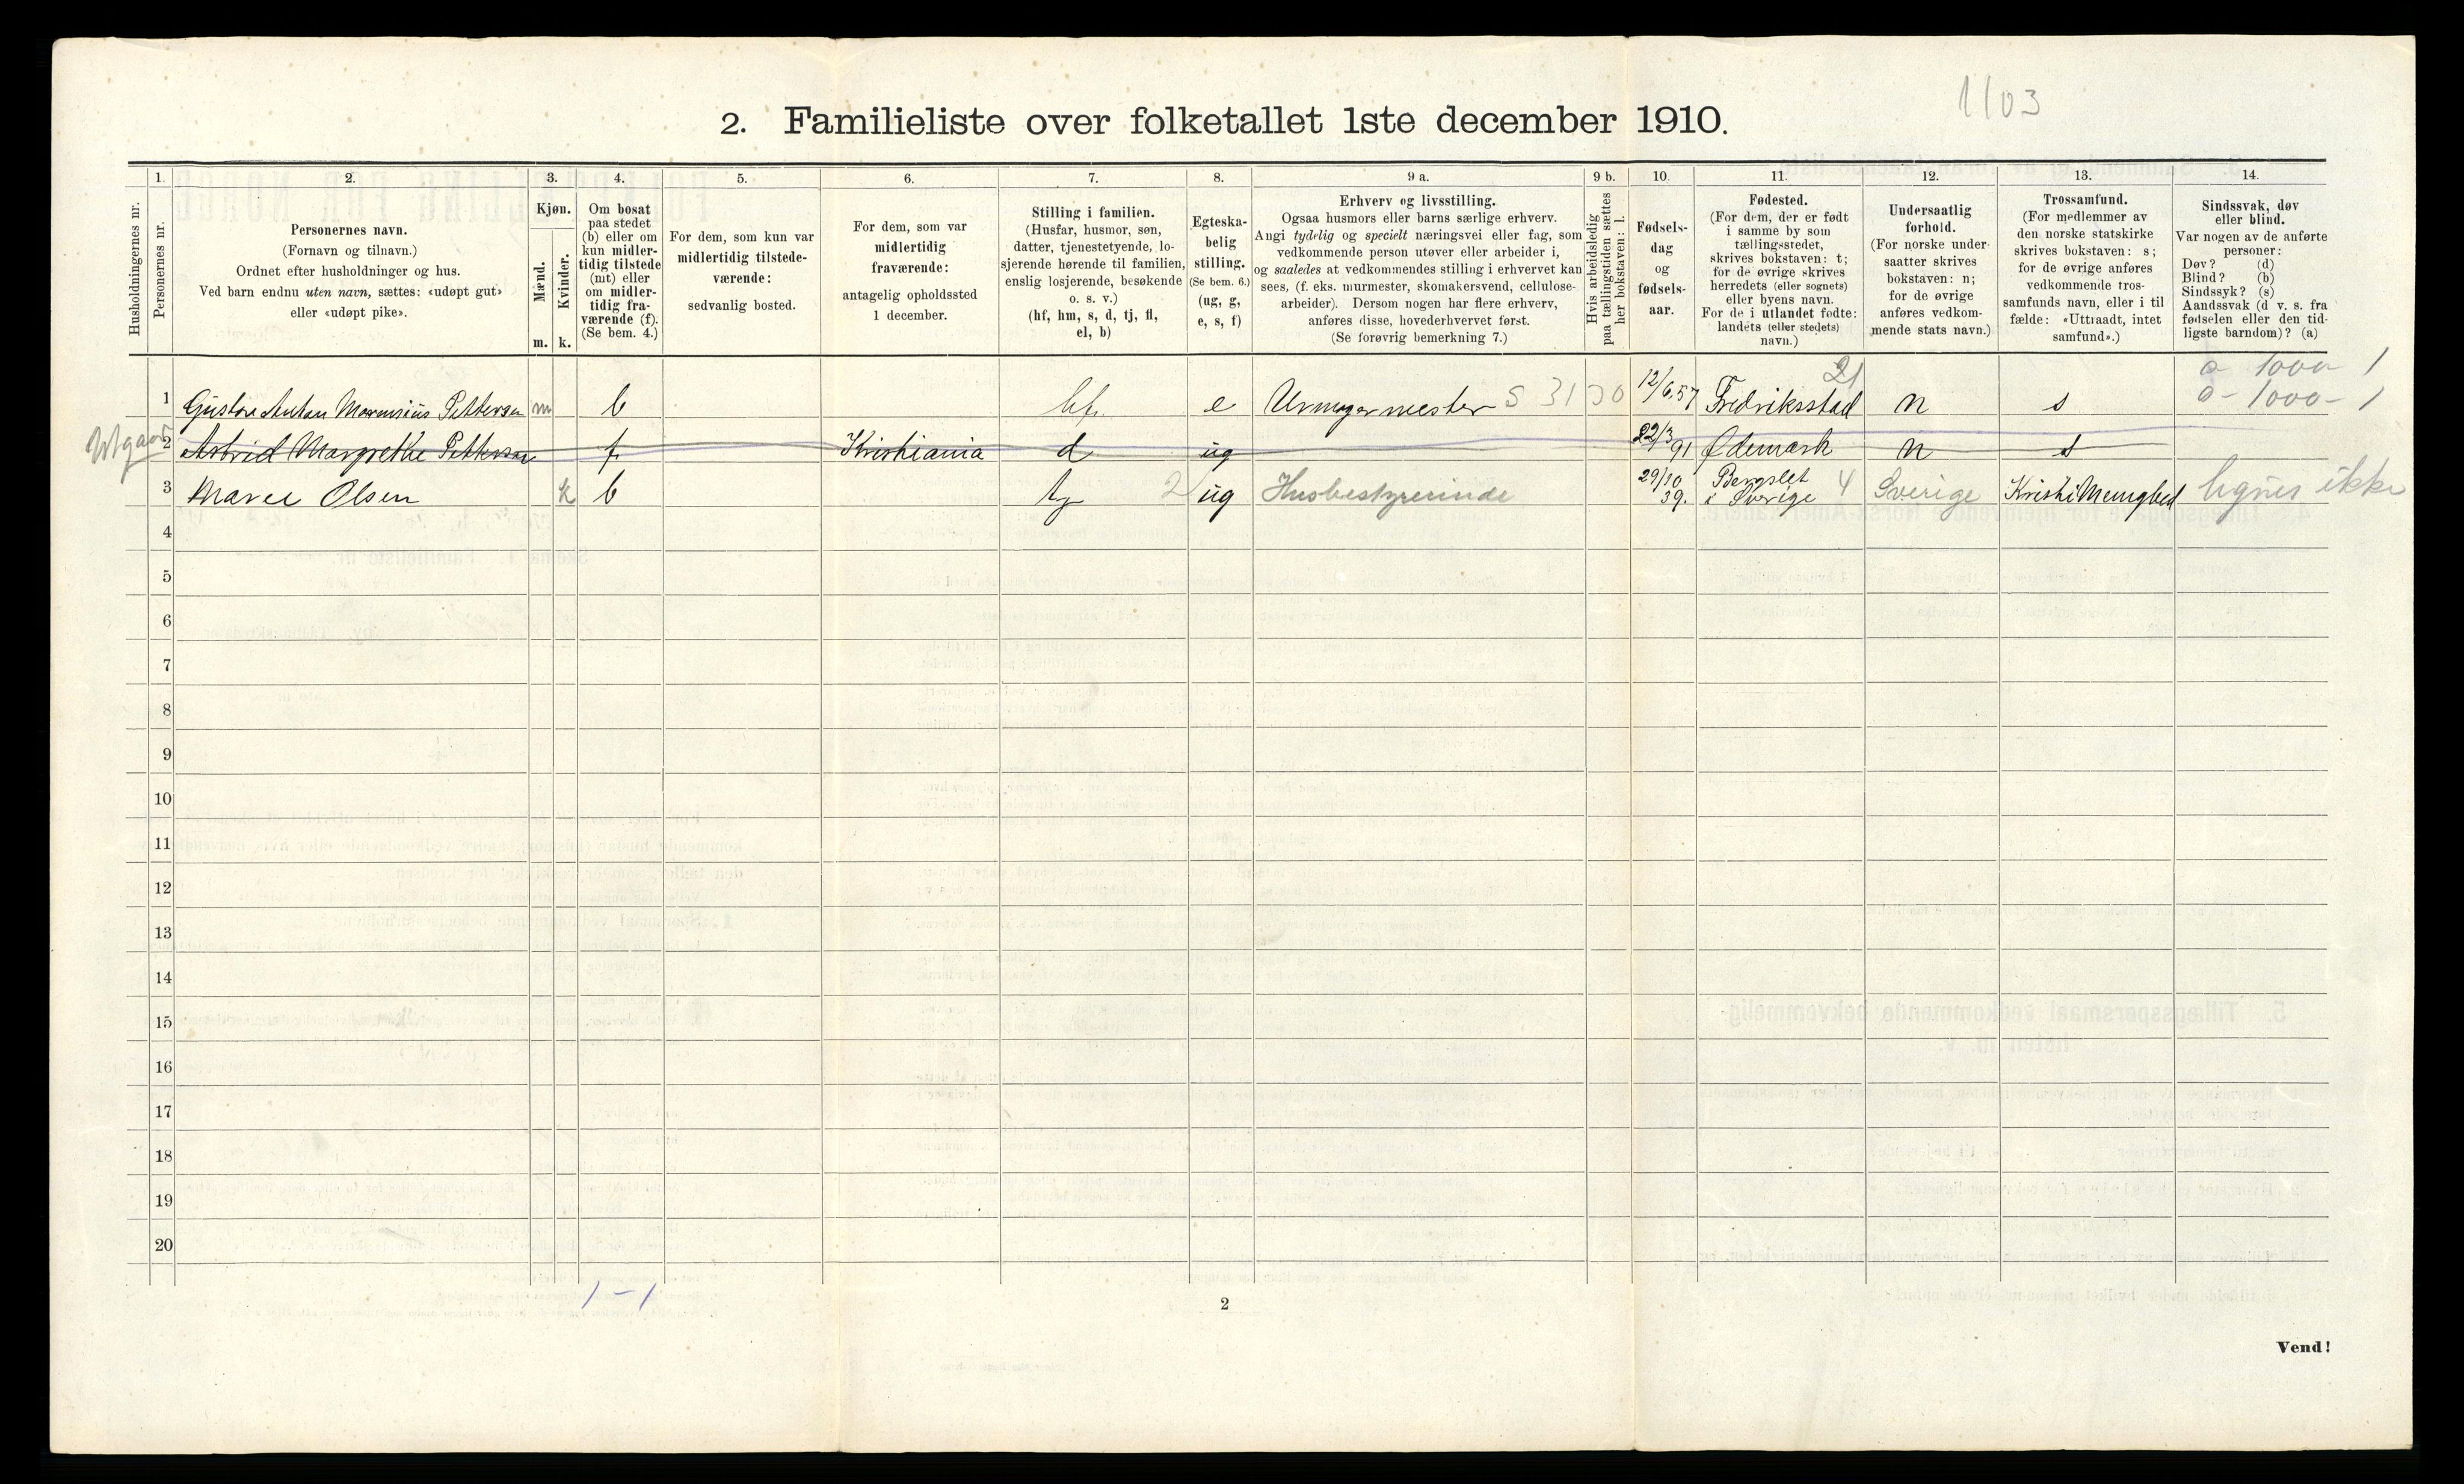 1103
2. Familieliste over folketallet 1ste december 1910.
1. 2. 3. 4. 5. 6. 7. 8. 9 a. 9 b. 10. 11. 12. 13. 14.
Husholdningernes nr.
Personernes nr.
Personernes navn.
(Fornavn og tilnavn.)
Ordnet efter husholdninger og hus.
Ved barn endnu uten navn, sættes: «udøpt gut»
eller «udøpt pike».
Kjøn.
Mænd.
Kvinder.
m. k.
Om bosat
paa stedet
(b) eller om
kun midler-
tidig tilstede
(mt) eller
om midler-
tidig fra-
værende (f).
(Se bem. 4.)
For dem, som kun var
midlertidig tilstede-
værende:
sedvanlig bosted.
For dem, som var
midlertidig
fraværende:
antagelig opholdssted
1 december.
Stilling i familien.
(Husfar, husmor, søn,
datter, tjenestetyende, lo-
sjerende hørende til familien,
enslig losjerende, besøkende
o. s. v.)
(hf, hm, s, d, tj, fl,
el, b)
Egteska-
belig
stilling.
(Se bem. 6.)
(ug, g,
e, s, f)
Erhverv og livsstilling.
Ogsaa husmors eller barns særlige erhverv.
Angi tydelig og specielt næringsvei eller fag, som
vedkommende person utøver eller arbeider i,
og saaledes at vedkommendes stilling i erhvervet kan
sees, (f. eks. murmester, skomakersvend, cellulose-
arbeider). Dersom nogen har flere erhverv,
anføres disse, hovederhvervet først.
(Se forøvrig bemerkning 7.)
Hvis arbeidsledig
paa tællingstiden sættes
her bokstaven: l.
Fødsels-
dag
og
fødsels-
aar.
Fødested.
(For dem, der er født
i samme by som
tællingsstedet,
skrives bokstaven: t;
for de øvrige skrives
herredets (eller sognets)
eller byens navn.
For de i utlandet fødte:
landets (eller stedets)
navn.)
Undersaatlig
forhold.
(For norske under-
saatter skrives
bokstaven: n;
for de øvrige
anføres vedkom-
mende stats navn.)
Trossamfund.
(For medlemmer av
den norske statskirke
skrives bokstaven: s;
for de øvrige anføres
vedkommende tros-
samfunds navn, eller i til
fælde: «Uttraadt, intet
samfund».)
Sindssvak, døv
eller blind.
Var nogen av de anførte
personer:
Døv? (d)
Blind? (b)
Sindssyk? (s)
Aandssvak (d v. s. fra
fødselen eller den tid-
ligste barndom)? (a)
21 0 - 1000 - 1
1 Gustav Anton Pettersen m b hf. e Urmagermester S 31 30 12/6.57 Fredriksstad n s 0 - 1000 - 1
Utgaar 2 Astrid Margrethe Pettersen f Kristiania d ug 22/3 91 Ødemark n s
3 Maree Olsen k b tj 2 ug Husbestyrerinde 29/10 39. i Sverige 4 Sverige lignes ikke
4
5
6
7
8
9
10
11
12
13
14
15
16
17
18
19
20
1 - 1
2
Vend!